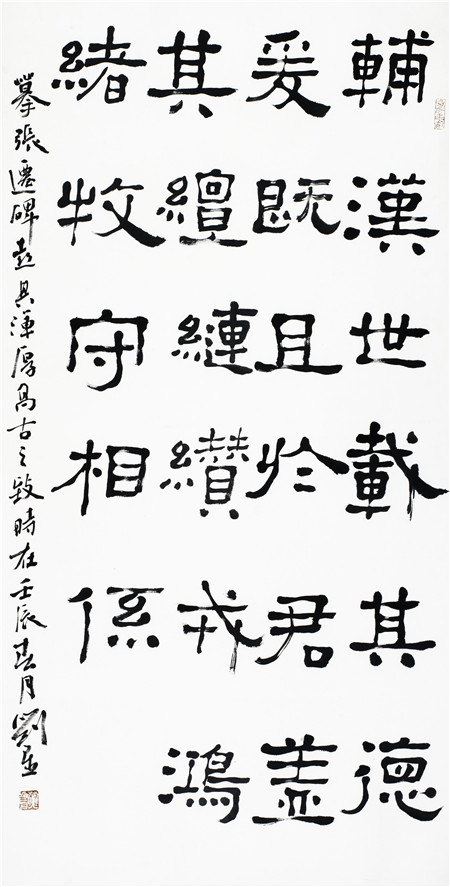 輔漢世載其德
爰既且於君盖
其繵縺纘戎鴻
緒牧守相係
摹張遷碑意具渾厚高古之致時在壬辰春月劉